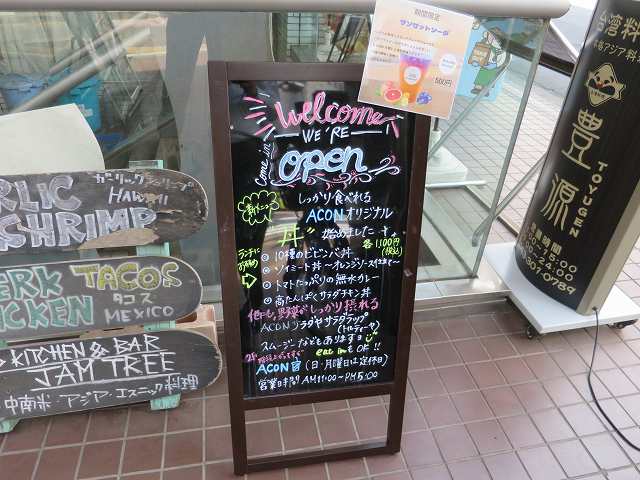 期間限定
サンセットソーダ
500円
Welcome
WE'RE
Come in
open
しっかり食べれる
ACONオリジナル
丼 始めました
各1100円
(税込)
ランチに
おすすめ
10種のビビンバ丼
ソイミート丼〜オレンジソース仕立て〜
トマトたっぷりの無水カレー
高たんぱくサラダチキン丼
他にも野菜がしっかり摂れる
ACONソラダやサラダラップ
(トルティーヤ)
スムージーなどもあります
eat inもOK!!
ACON (日・月曜日は定休日)
営業時間 AM11:00〜PM5:00
GARLIC
SHRIMP
ガーリックシュリンプ
HAWAII
JERK
CHICKEN
TACOS
タコス
MEXICO
KITCHEN & BAR
JAM TREE
中南米 アジア・エスニック料理
台湾料
アジア料
豊源
TOYUGEN
営業時間